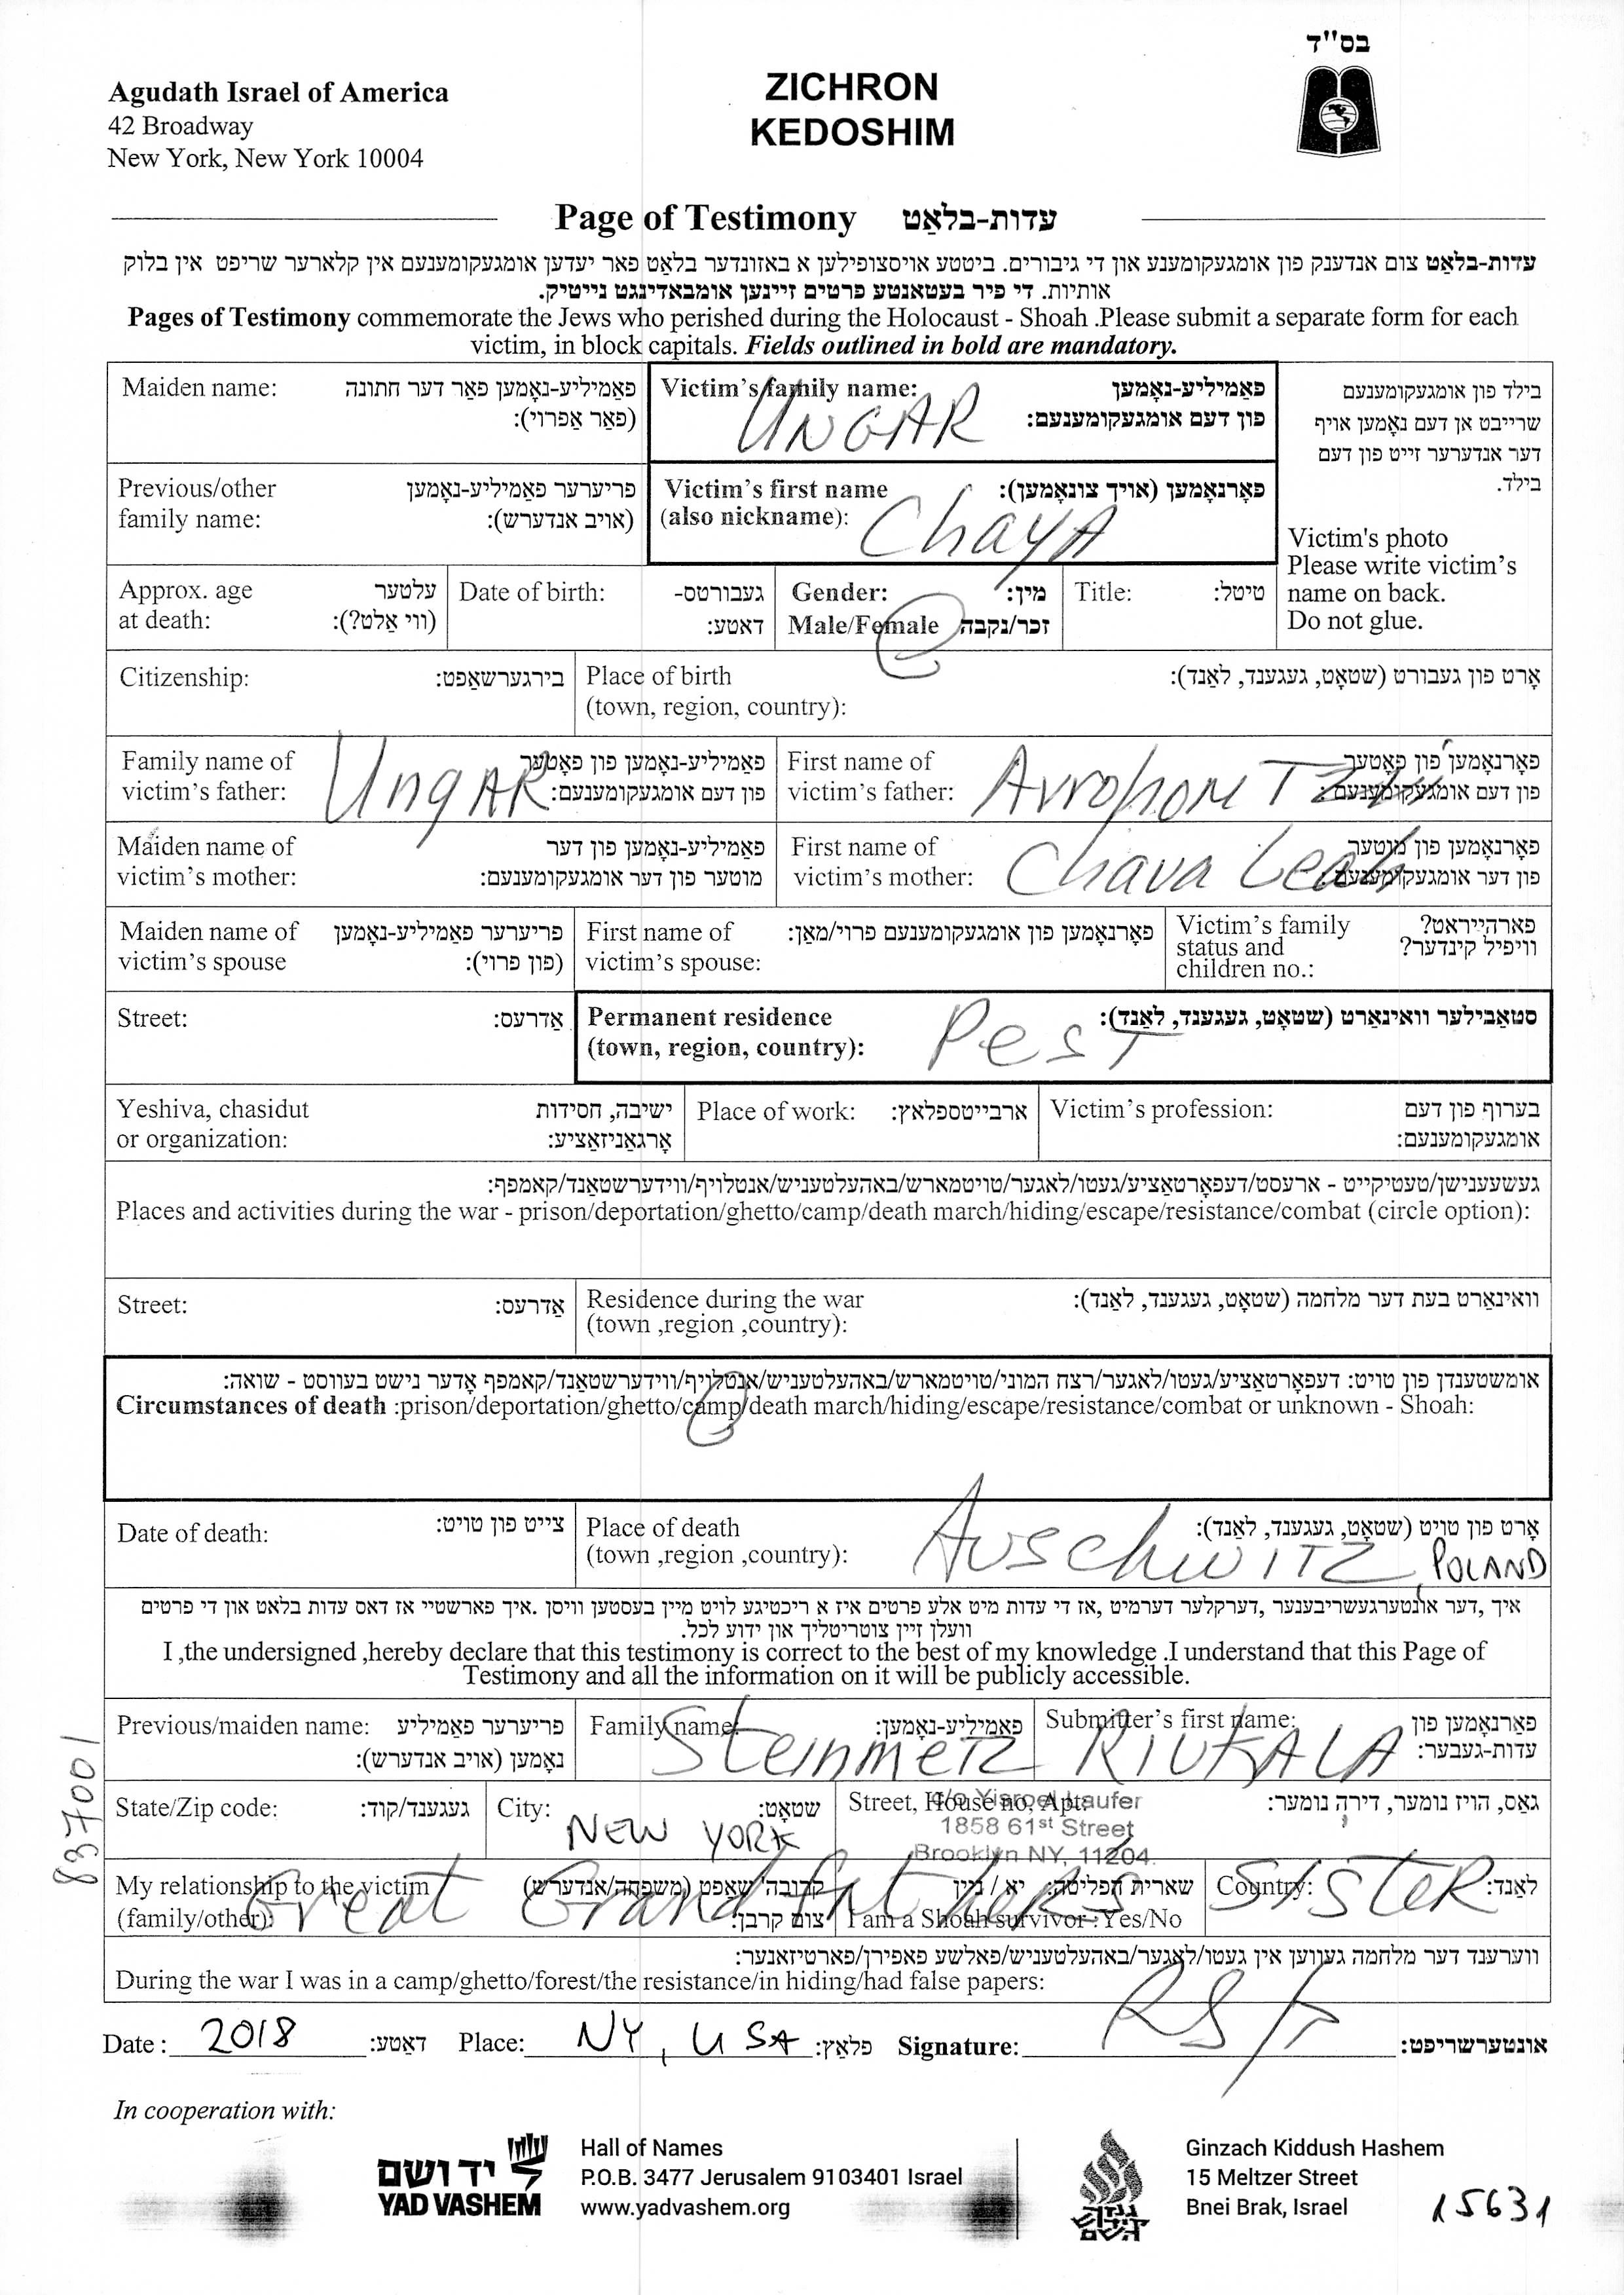 בס"ד
Agudath Israel of America
42 Broadway
New York, New York 10004
ZICHRON
KEDOSHIM
Page of Testimony עדות-בלאַט
עדות-בלאַט צום אנדענק פון אומגעקומענע און די גיבורים. ביטטע אויסצופילען א באזונדער בלאַט פאר יעדען אומגעקומענעם אין קלארער שריפט אין בלוק
אותיות. די פיר בעטאנטע פרטים זיינען אומבאדינגט נייטיק.
Pages of Testimony commemorate the Jews who perished during the Holocaust - Shoah .Please submit a separate form for each
victim, in block capitals. Fields outlined in bold are mandatory.
Maiden name: פאַמיליע-נאָמען פאַר דער חתונה
(פאַר אַפרוי):
Victim's family name: פאַמיליע-נאָמען
פון דעם אומגעקומענעם:
UNGAR
בילד פון אומגעקומענעם
שרייבט אן דעם נאָמען אויף
דער אנדערער זייט פון דעם
בילד.
Victim's photo
Please write victim's
name on back.
Do not glue.
Previous/other פריערער פאַמיליע-נאָמען
family name: (אויב אנדערש):
Victim's first name פאָרנאָמען (אויך צונאָמען):
(also nickname): ChayA
Approx. age עלטער
at death: (ווי אַלט?):
Date of birth: געבורטס-
דאטע:
Gender: מין:
Male/Female זכר/נקבה
Title: טיטל:
Citizenship: בירגערשאַפט:
Place of birth אָרט פון געבורט (שטאָט, געגענד, לאַנד):
(town, region, country):
Family name of פאַמיליע-נאָמען פון פאָטער
victim's father: פון דעם אומגעקומענעם:
UngAR
First name of פאָרנאָמען פון פאָטער
victim's father: פון דעם אומגעקומענעם:
Avrohom
Maiden name of פאַמיליע-נאָמען פון דער
victim's mother: מוטער פון דער אומגעקומענעם:
First name of פאָרנאָמען פון מוטער
victim's mother: פון דער אומגעקומענעם:
Chava Leah
Maiden name of פריערער פאַמיליע-נאָמען
victim's spouse (פון פרוי):
First name of פאָרנאָמען פון אומגעקומענעם פרוי/מאַן:
victim's spouse:
Victim's family פארהייראט?
status and וויפיל קינדער?
children no.:
Street: אַדרעס:
Permanent residence סטאַבילער וואוינאָרט (שטאָט, געגענד, לאַנד):
(town, region, country): PesT
Yeshiva, chasidut ישיבה, חסידות
or organization: אָרגאַניזאַציע:
Place of work: ארבייטספלאץ:
Victim's profession: בערוף פון דעם
אומגעקומענעם:
געשעענישן/טעטיקייט - ארעסט/דעפאָרטאַציע/געטו/לאגער/טויטמארש/באהעלטעניש/אנטלויף/ווידערשטאַנד/קאמפף:
Places and activities during the war - prison/deportation/ghetto/camp/death march/hiding/escape/resistance/combat (circle option):
Street: אַדרעס:
Residence during the war וואוינאָרט בעת דער מלחמה (שטאָט, געגענד, לאַנד):
(town ,region ,country):
אומשטענדן פון טויט: דעפאָרטאַציע/געטו/לאגער/רצח המוני/טויטמארש/באהעלטעניש/אנטלויף/ווידערשטאַנד/קאמפף אָדער נישט בעוווסט - שואה:
Circumstances of death :prison/deportation/ghetto/camp/death march/hiding/escape/resistance/combat or unknown - Shoah:
Date of death: צייט פון טויט:
Place of death אָרט פון טויט (שטאָט, געגענד, לאַנד):
(town ,region ,country): AUSChWITZ, POLAND
איך, דער אונטערגעשריבענער ,דערקלער דערמיט ,אז די עדות מיט אלע פרטים איז א ריכטיגע לויט מיין בעסטען וויסן .איך פארשטיי אז דאס עדות בלאט און די פרטים
וועלן זיין צוטריטליך און ידוע לכל.
I ,the undersigned ,hereby declare that this testimony is correct to the best of my knowledge .I understand that this Page of
Testimony and all the information on it will be publicly accessible.
Previous/maiden name: פריערער פאַמיליע
נאָמען (אויב אנדערש):
Family name: פאַמיליע-נאָמען:
SteinmeTZ
Submitter's first name: פאָרנאָמען פון
עדות-געבער:
RIVKALA
State/Zip code: געגענד/קוד:
City: שטאָט:
NEW YORK
Street, House no, Apt: גאַס, הויז נומער, דירה נומער:
c/o Yisroel Laufer
1858 61st Street
Brooklyn NY, 11204
My relationship to the victim קרובה'שאַפט (משפחה/אנדערש)
(family/other): צום קרבן:
שארית הפליטה: יא / ניין
I am a Shoah survivor :Yes/No
Country: לאַנד:
Great GrandfatheRs SISTeR
ווערענד דער מלחמה געווען אין געטו/לאַגער/באהעלטעניש/פאלשע פאפירן/פארטיזאנער:
During the war I was in a camp/ghetto/forest/the resistance/in hiding/had false papers:
Date : 2018 דאטע: Place: NY, USA פלאַץ: Signature: אונטערשריפט:
In cooperation with:
יד ושם
YAD VASHEM
Hall of Names
P.O.B. 3477 Jerusalem 9103401 Israel
www.yadvashem.org
גנזך
קידוש
השם
Ginzach Kiddush Hashem
15 Meltzer Street
Bnei Brak, Israel
15631
8370001